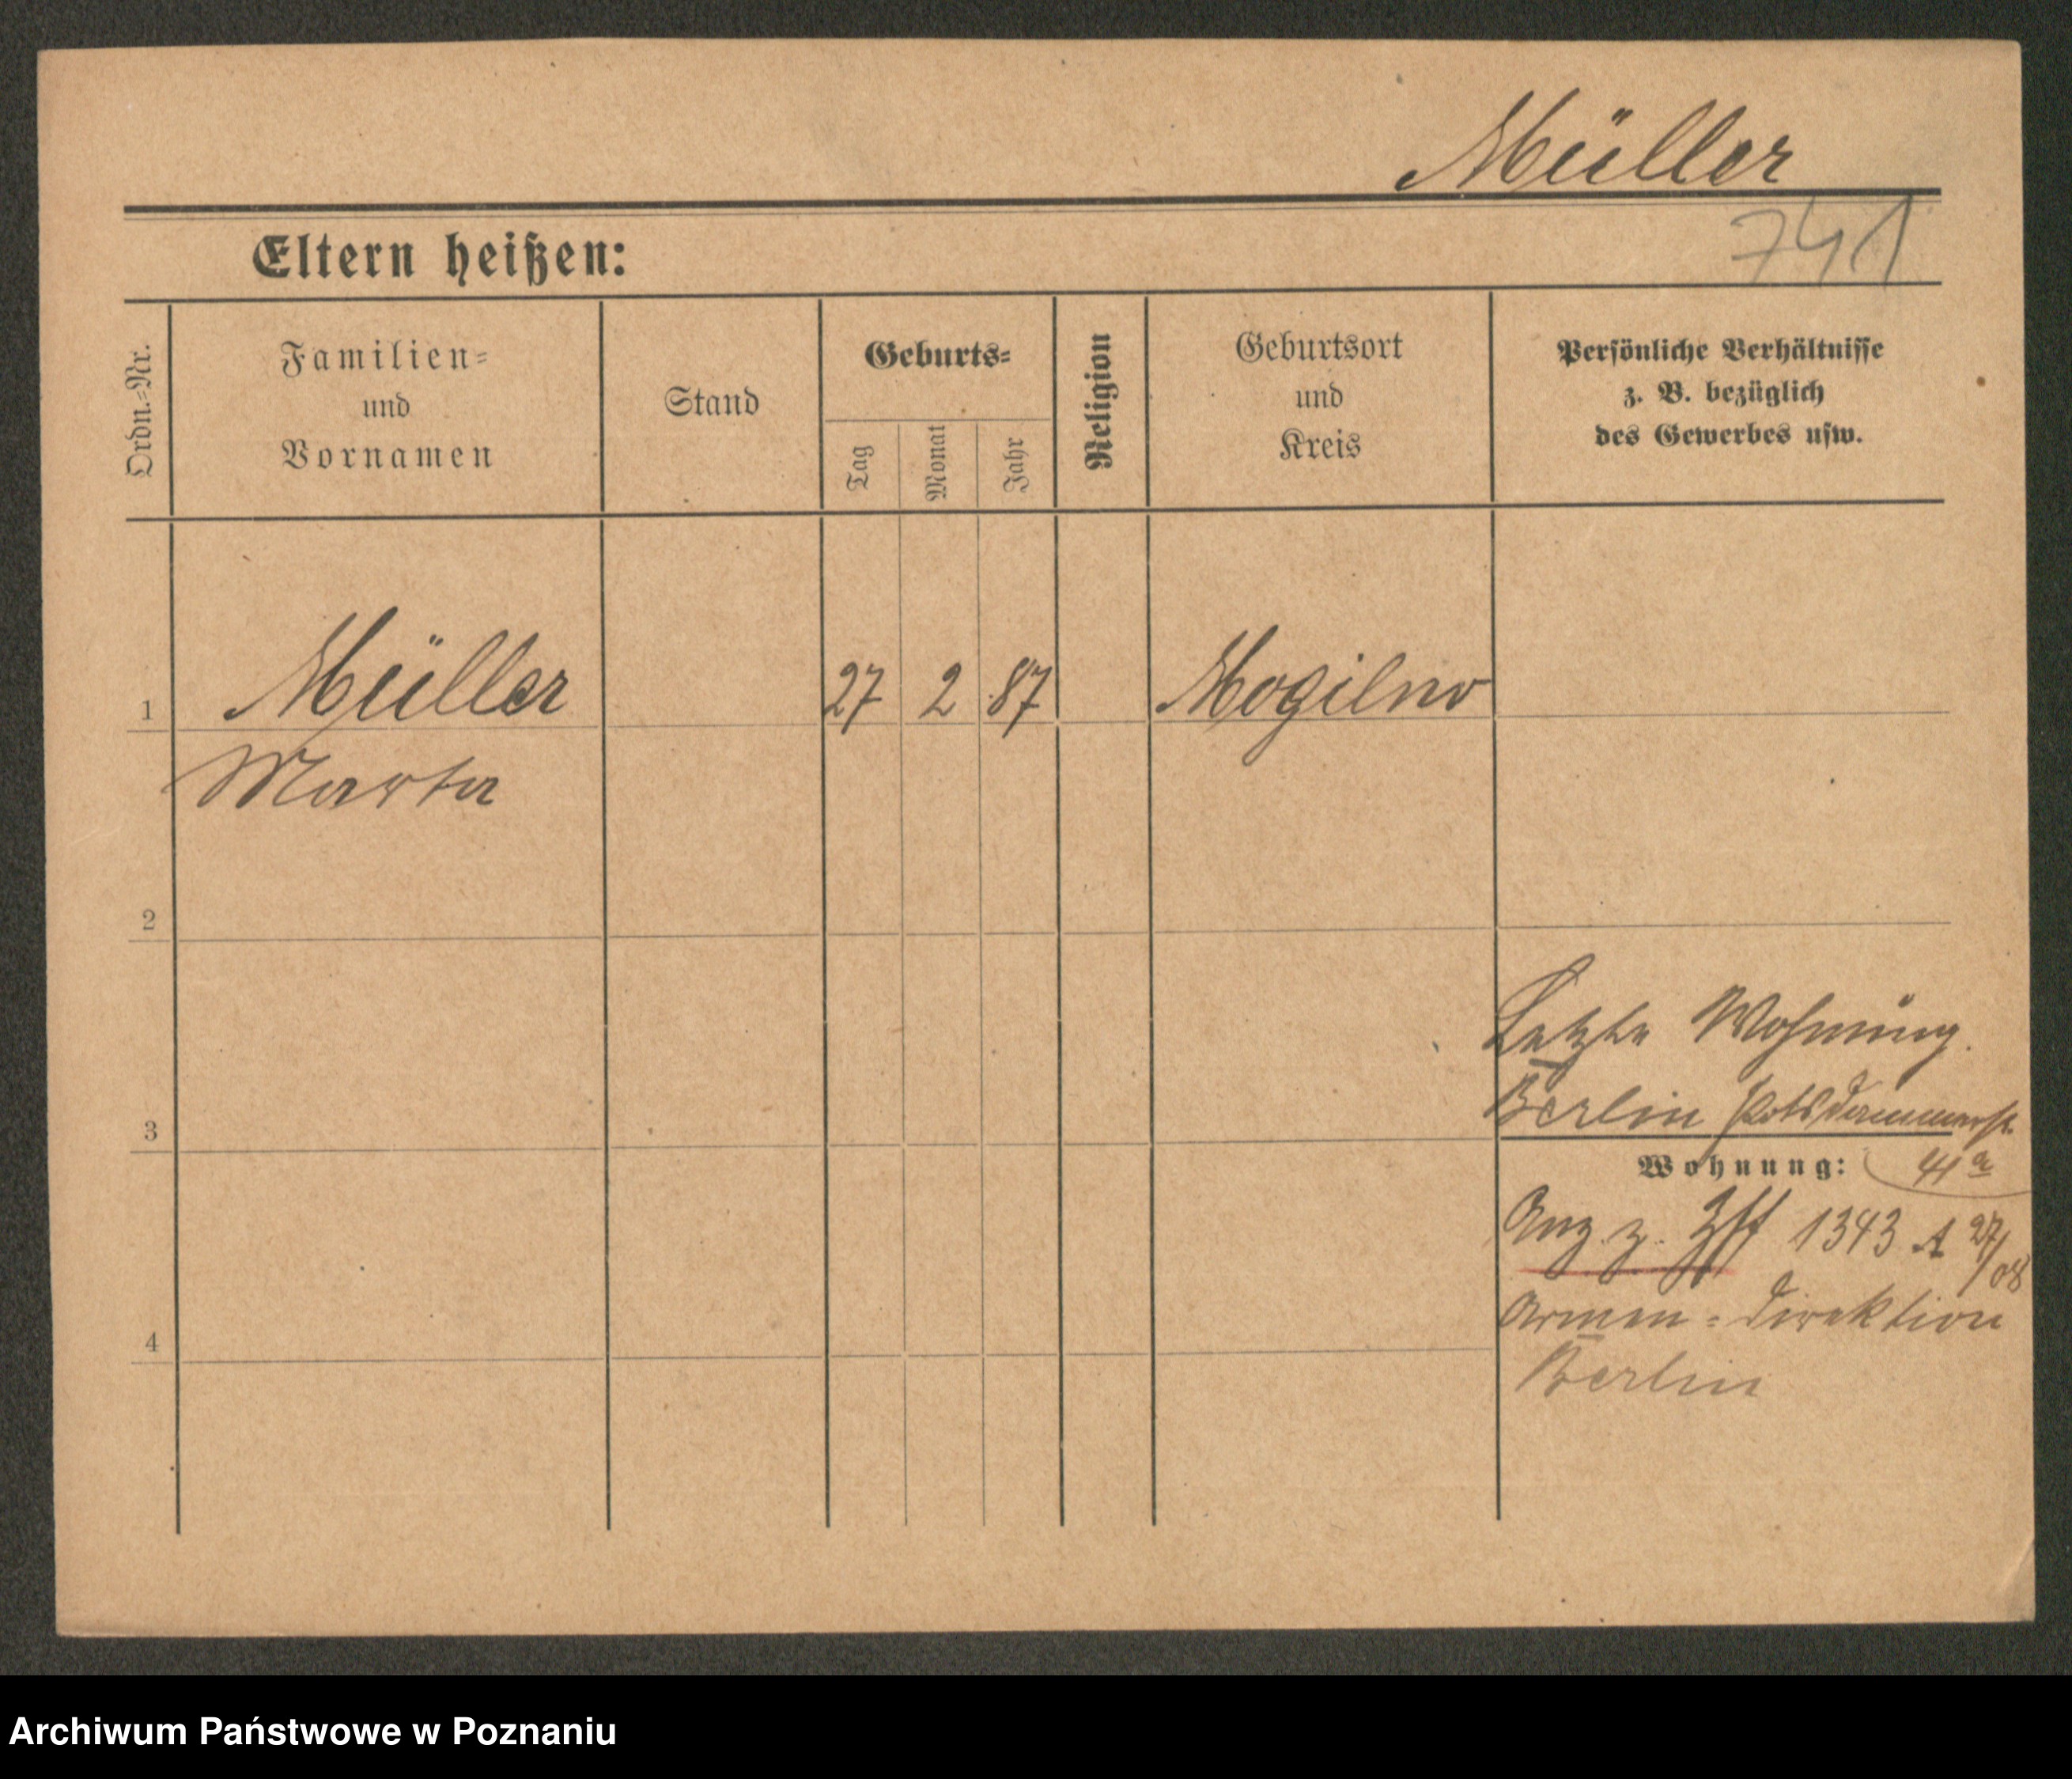 Müller
741
Eltern heißen:
Ordn.-Nr.
Familien-
und
Vornamen
Stand
Geburts-
Tag
Monat
Jahr
Religion
Geburtsort
und
Kreis
Persönliche Verhältnisse
z. B. bezüglich
des Gewerbes usw.
1 Müller 27 2 87 Mogilno
Marta
2
Letzte Wohnung.
Berlin Potsdammerst.
3
Wohnung: 41a
Anz. z. Zff 1343 A 27/08
Armen-Direktion
4
Berlin
Archiwum Państwowe w Poznaniu